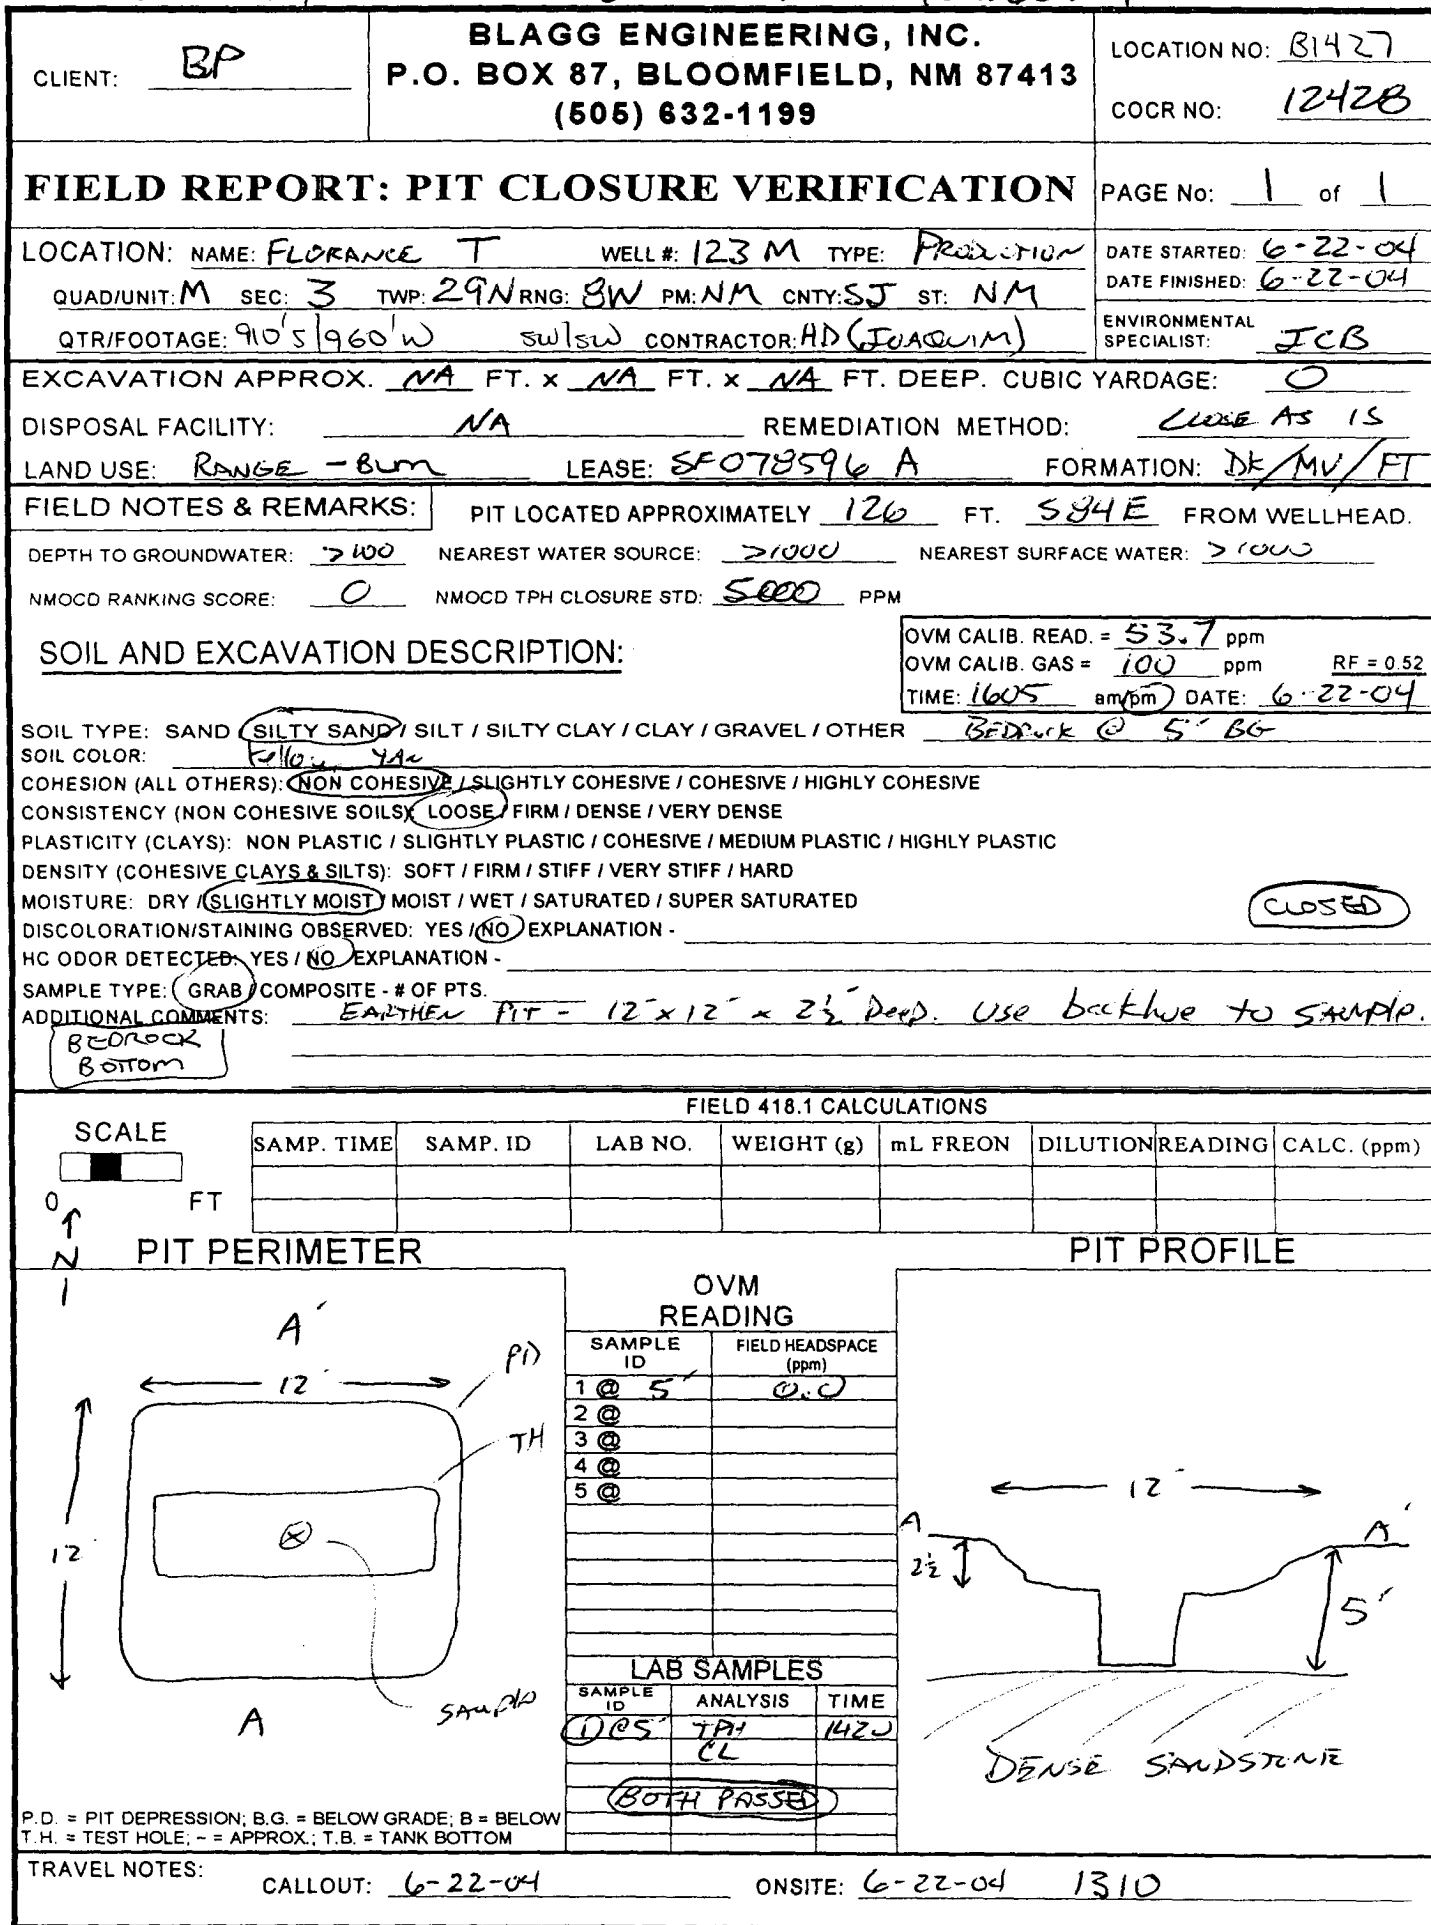 BLAGG ENGINEERING, INC.
P.O. BOX 87, BLOOMFIELD, NM 87413
(505) 632-1199
CLIENT: BP
LOCATION NO: B1427
COCR NO: 12428
FIELD REPORT: PIT CLOSURE VERIFICATION
PAGE No: 1 of 1
LOCATION: NAME: FLORANCE T WELL #: 123 M TYPE: PRODUCTION
QUAD/UNIT: M SEC: 3 TWP: 29N RNG: 8W PM: NM CNTY: SJ ST: NM
QTR/FOOTAGE: 910'S/960'W SW/SW CONTRACTOR: HD (JOAQUIM)
DATE STARTED: 6-22-04
DATE FINISHED: 6-22-04
ENVIRONMENTAL
SPECIALIST: JCB
EXCAVATION APPROX. NA FT. x NA FT. x NA FT. DEEP. CUBIC YARDAGE: 0
DISPOSAL FACILITY: NA REMEDIATION METHOD: CLOSE AS IS
LAND USE: RANGE - BLM LEASE: SF078596 A FORMATION: DK/MV/FT
FIELD NOTES & REMARKS: PIT LOCATED APPROXIMATELY 126 FT. S84E FROM WELLHEAD.
DEPTH TO GROUNDWATER: >100 NEAREST WATER SOURCE: >1000 NEAREST SURFACE WATER: >1000
NMOCD RANKING SCORE: 0 NMOCD TPH CLOSURE STD: 5000 PPM
SOIL AND EXCAVATION DESCRIPTION:
OVM CALIB. READ. = 53.7 ppm
OVM CALIB. GAS = 100 ppm RF = 0.52
TIME: 1605 am/pm DATE: 6-22-04
SOIL TYPE: SAND / SILTY SAND / SILT / SILTY CLAY / CLAY / GRAVEL / OTHER BEDROCK @ 5' BG
SOIL COLOR: Yellow TAN
COHESION (ALL OTHERS): NON COHESIVE / SLIGHTLY COHESIVE / COHESIVE / HIGHLY COHESIVE
CONSISTENCY (NON COHESIVE SOILS): LOOSE / FIRM / DENSE / VERY DENSE
PLASTICITY (CLAYS): NON PLASTIC / SLIGHTLY PLASTIC / COHESIVE / MEDIUM PLASTIC / HIGHLY PLASTIC
DENSITY (COHESIVE CLAYS & SILTS): SOFT / FIRM / STIFF / VERY STIFF / HARD
MOISTURE: DRY / SLIGHTLY MOIST / MOIST / WET / SATURATED / SUPER SATURATED
CLOSED
DISCOLORATION/STAINING OBSERVED: YES / NO EXPLANATION -
HC ODOR DETECTED: YES / NO EXPLANATION -
SAMPLE TYPE: GRAB / COMPOSITE - # OF PTS.
ADDITIONAL COMMENTS: EARTHEN PIT - 12' x 12' x 2½' Deep. Use backhoe to SAMPLE.
BEDROCK
BOTTOM
FIELD 418.1 CALCULATIONS
SCALE
0 FT
SAMP. TIME SAMP. ID LAB NO. WEIGHT (g) mL FREON DILUTION READING CALC. (ppm)
N
PIT PERIMETER
A'
12'
PD
TH
12'
SAMPLE
A
OVM
READING
SAMPLE ID FIELD HEADSPACE (ppm)
1 @ 5' 0.0
2 @
3 @
4 @
5 @
LAB SAMPLES
SAMPLE ID ANALYSIS TIME
1@5' TPH 1420
CL
BOTH PASSED
PIT PROFILE
12'
A
A'
2½
5'
DENSE SANDSTONE
P.D. = PIT DEPRESSION; B.G. = BELOW GRADE; B = BELOW
T.H. = TEST HOLE; ~ = APPROX.; T.B. = TANK BOTTOM
TRAVEL NOTES: CALLOUT: 6-22-04 ONSITE: 6-22-04 1310